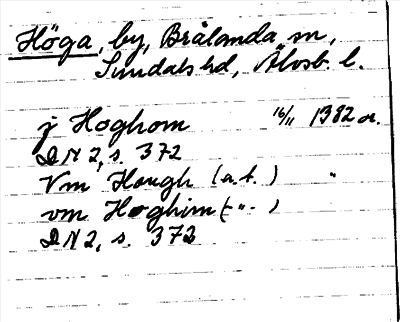 Höga, by, Brålanda sn,
Sundals hd, Älvsb. l.
j Hoghom 16/11 1382 or.
DN 2, s. 372
Vm Hough (a.t.) "
vm Hoghim (- " - )
DN 2, s. 372